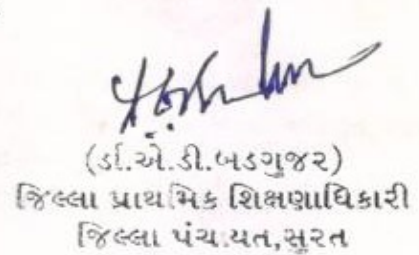 (ર્ડા.એ.ડી.બડગુજર)
જિલ્લા પ્રાથમિક શિક્ષણાધિકારી
જિલ્લા પંચાયત,સુરત